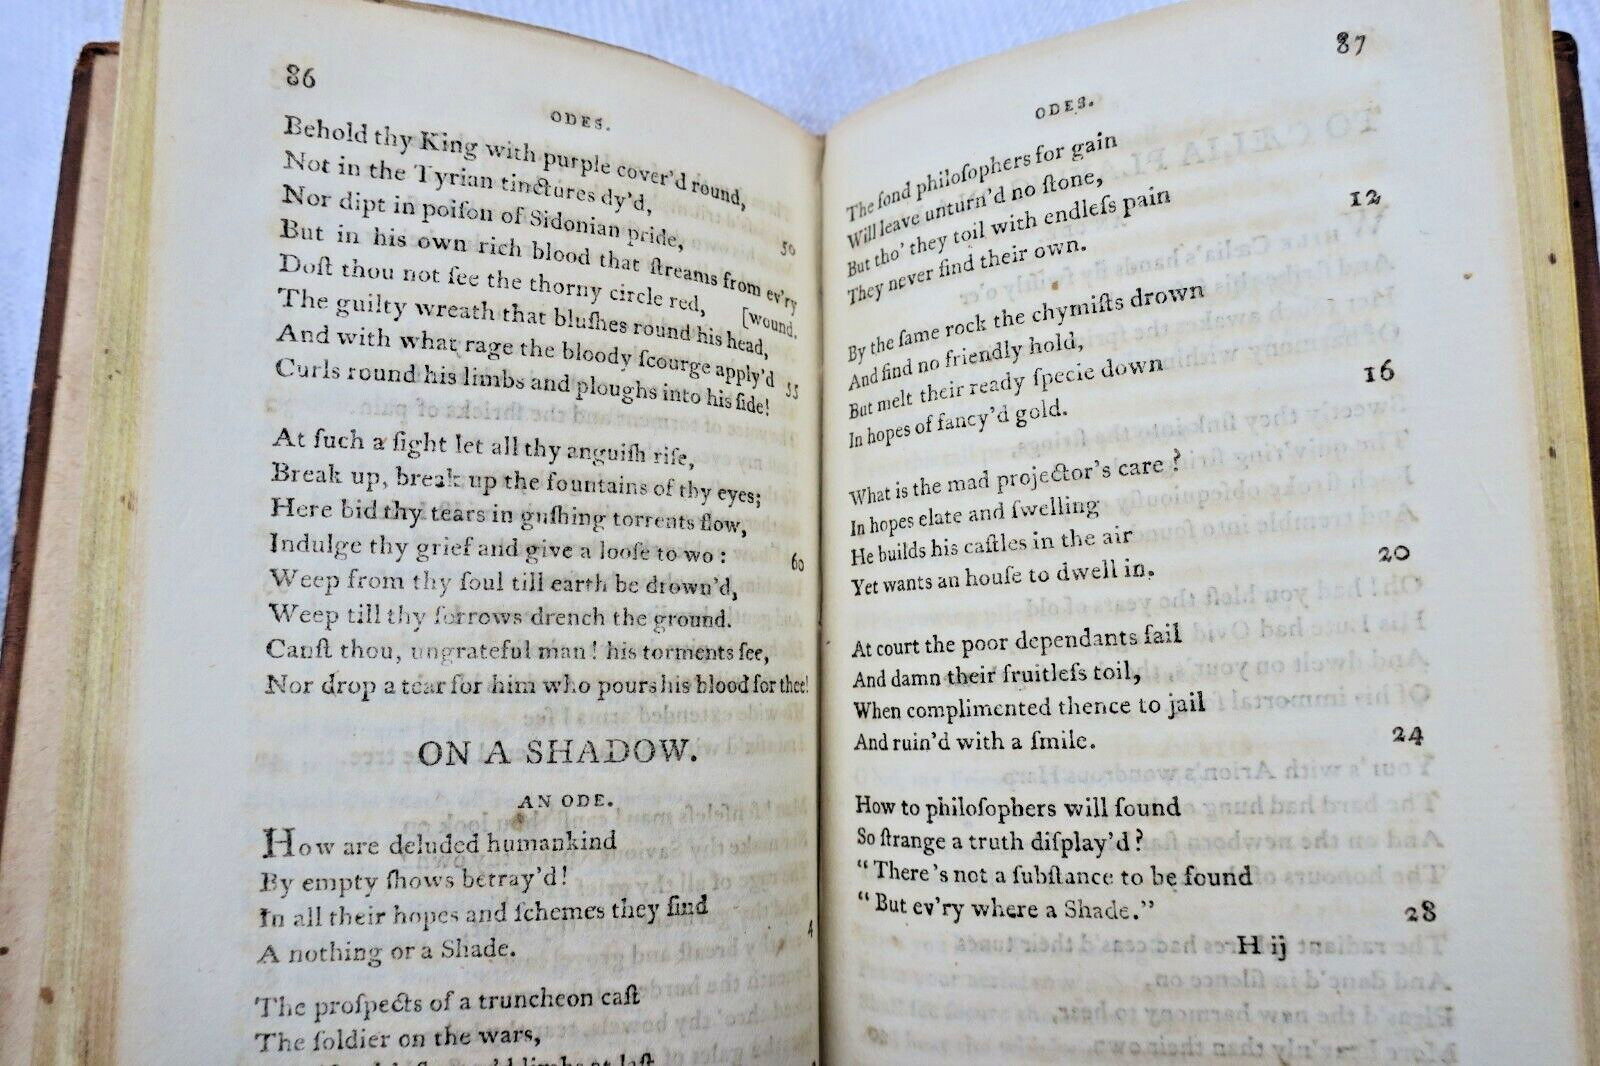 86
ODES.
Behold thy King with purple cover'd round,
Not in the Tyrian tinctures dy'd,
Nor dipt in poiſon of Sidonian pride, 50
But in his own rich blood that ſtreams from ev'ry
Doſt thou not ſee the thorny circle red, [wound.
The guilty wreath that bluſhes round his head,
And with what rage the bloody ſcourge apply'd
Curls round his limbs and ploughs into his ſide! 55
At ſuch a ſight let all thy anguiſh riſe,
Break up, break up the fountains of thy eyes;
Here bid thy tears in guſhing torrents flow,
Indulge thy grief and give a looſe to wo: 60
Weep from thy ſoul till earth be drown'd,
Weep till thy ſorrows drench the ground.
Canſt thou, ungrateful man! his torments ſee,
Nor drop a tear for him who pours his blood for thee!
ON A SHADOW.
AN ODE.
How are deluded humankind
By empty ſhows betray'd!
In all their hopes and ſchemes they find
A nothing or a Shade. 4
The proſpects of a truncheon caſt
The ſoldier on the wars,
limbs at laſt
87
ODES.
The fond philoſophers for gain
Will leave unturn'd no ſtone,
But tho' they toil with endleſs pain 12
They never find their own.
By the ſame rock the chymiſts drown
And find no friendly hold,
But melt their ready ſpecie down 16
In hopes of fancy'd gold.
What is the mad projector's care?
In hopes elate and ſwelling
He builds his caſtles in the air
Yet wants an houſe to dwell in. 20
At court the poor dependants fail
And damn their fruitleſs toil,
When complimented thence to jail
And ruin'd with a ſmile. 24
How to philoſophers will ſound
So ſtrange a truth diſplay'd?
"There's not a ſubſtance to be found
"But ev'ry where a Shade." 28
H ij